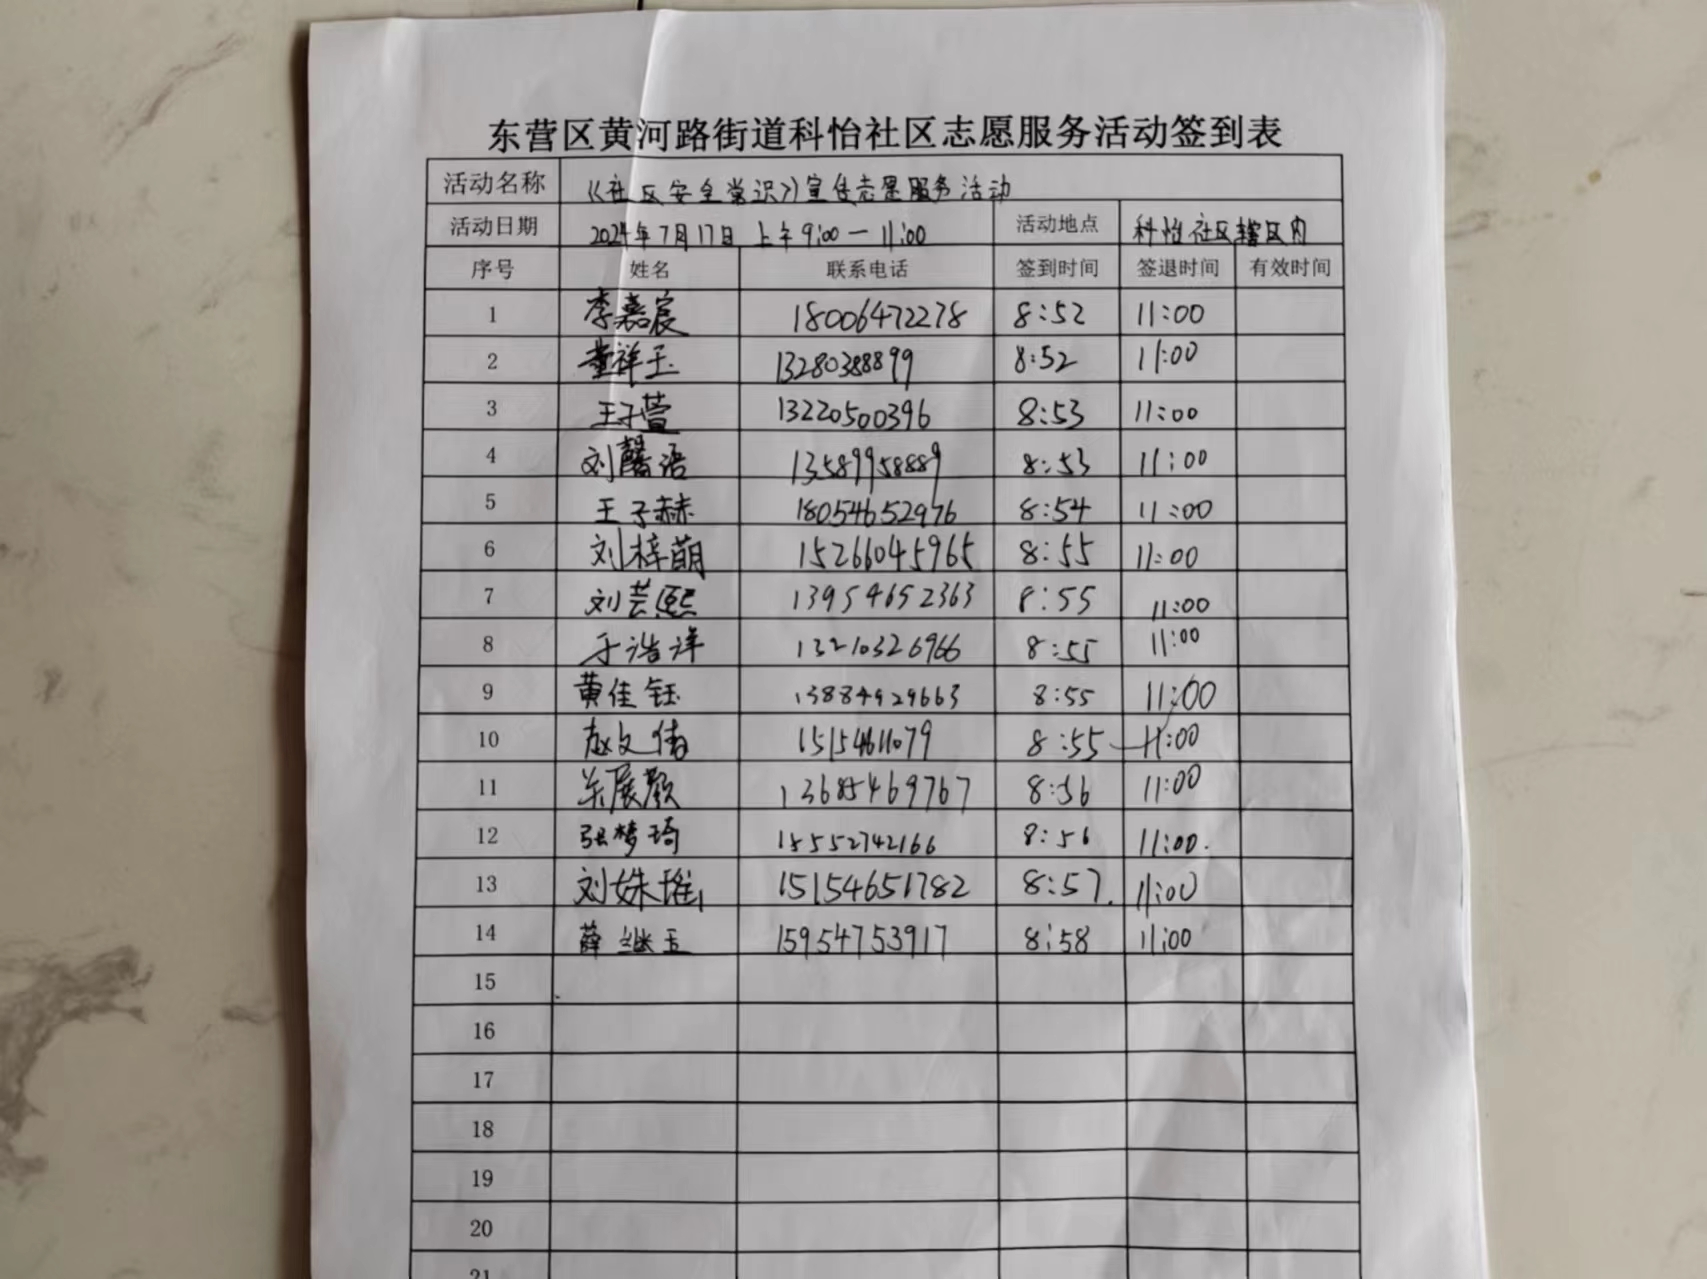 东营区黄河路街道科怡社区志愿服务活动签到表
活动名称 《社区安全常识》宣传志愿服务活动
活动日期 2024年7月17日 上午9:00—11:00 活动地点 科怡社区辖区内
序号 姓名 联系电话 签到时间 签退时间 有效时间
1 李嘉宸 18006472278 8:52 11:00
2 董祥玉 13280388899 8:52 11:00
3 王子萱 13220500396 8:53 11:00
4 刘馨语 13589958889 8:53 11:00
5 王子赫 18054652976 8:54 11:00
6 刘梓萌 15266045965 8:55 11:00
7 刘芸熙 13954652363 8:55 11:00
8 于浩洋 13210326966 8:55 11:00
9 黄佳钰 13884929663 8:55 11:00
10 赵文倩 8:55 11:00
11 13685469767 8:56 11:00
12 张梦琦 15552742166 8:56 11:00.
13 刘姝瑶 15154651782 8:57. 11:00
14 薛继玉 15954753917 8:58 11:00
15
16
17
18
19
20
21